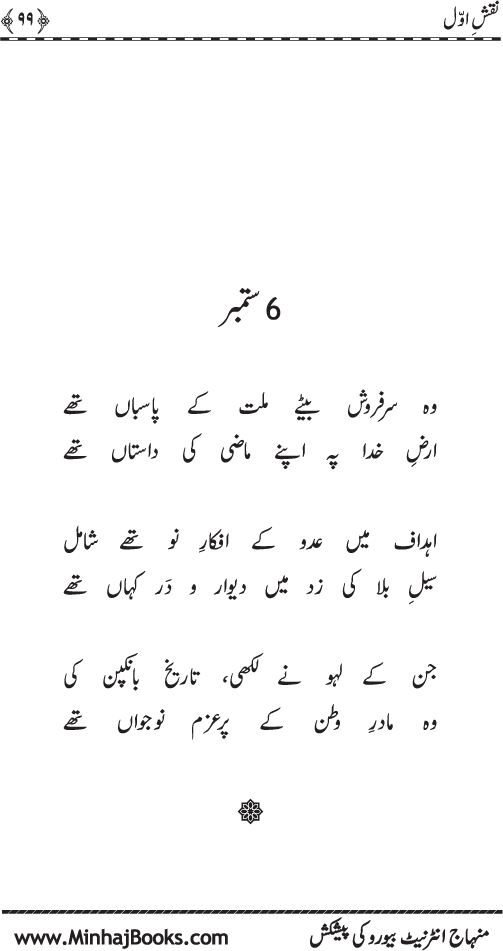 نقشِ اوّل ﴿۹۹﴾
6 ستمبر
وہ سرفروش بیٹے ملت کے پاسباں تھے
ارضِ خدا پہ اپنے ماضی کی داستاں تھے
اہداف میں عدو کے افکارِ نو تھے شامل
سیلِ بلا کی زد میں دیوار و دَر کہاں تھے
جن کے لہو نے لکھی، تاریخ بانکپن کی
وہ مادرِ وطن کے پرعزم نوجواں تھے
منہاج انٹرنیٹ بیورو کی پیشکش www.MinhajBooks.com